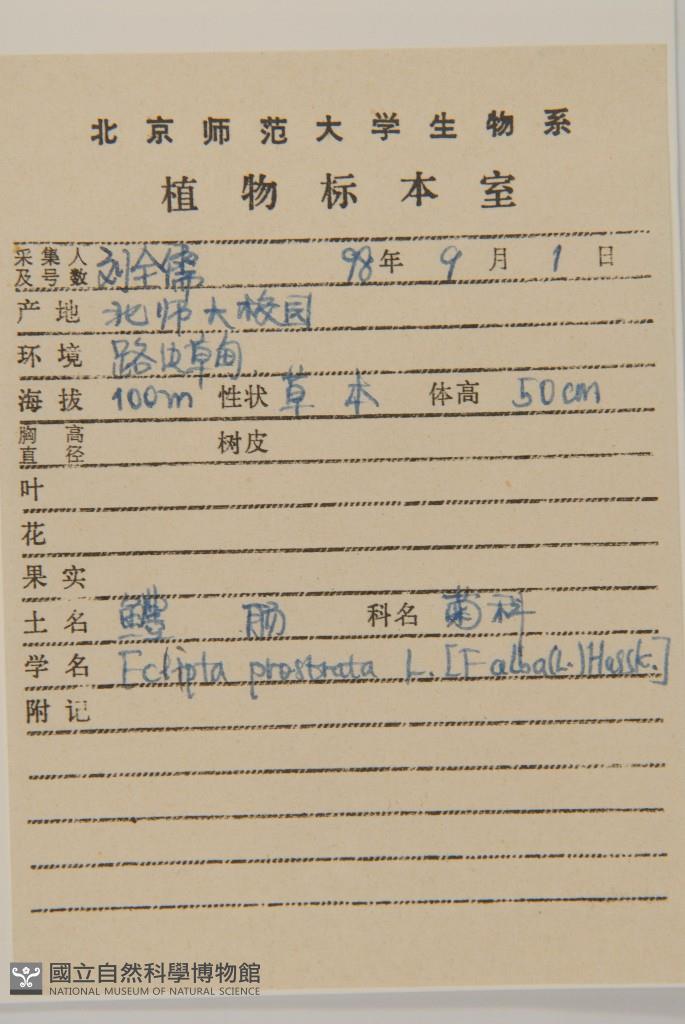 北京师范大学生物系
植物标本室
采集人及号数 刘全儒 98年 9月 1日
产地 北师大校园
环境 路边草甸
海拔 100m 性状 草本 体高 50cm
胸高直径 树皮
叶
花
果实
土名 鳢肠 科名 菊科
学名 Eclipta prostrata L. [E alba(L.) Hassk.]
附记
國立自然科學博物館
NATIONAL MUSEUM OF NATURAL SCIENCE